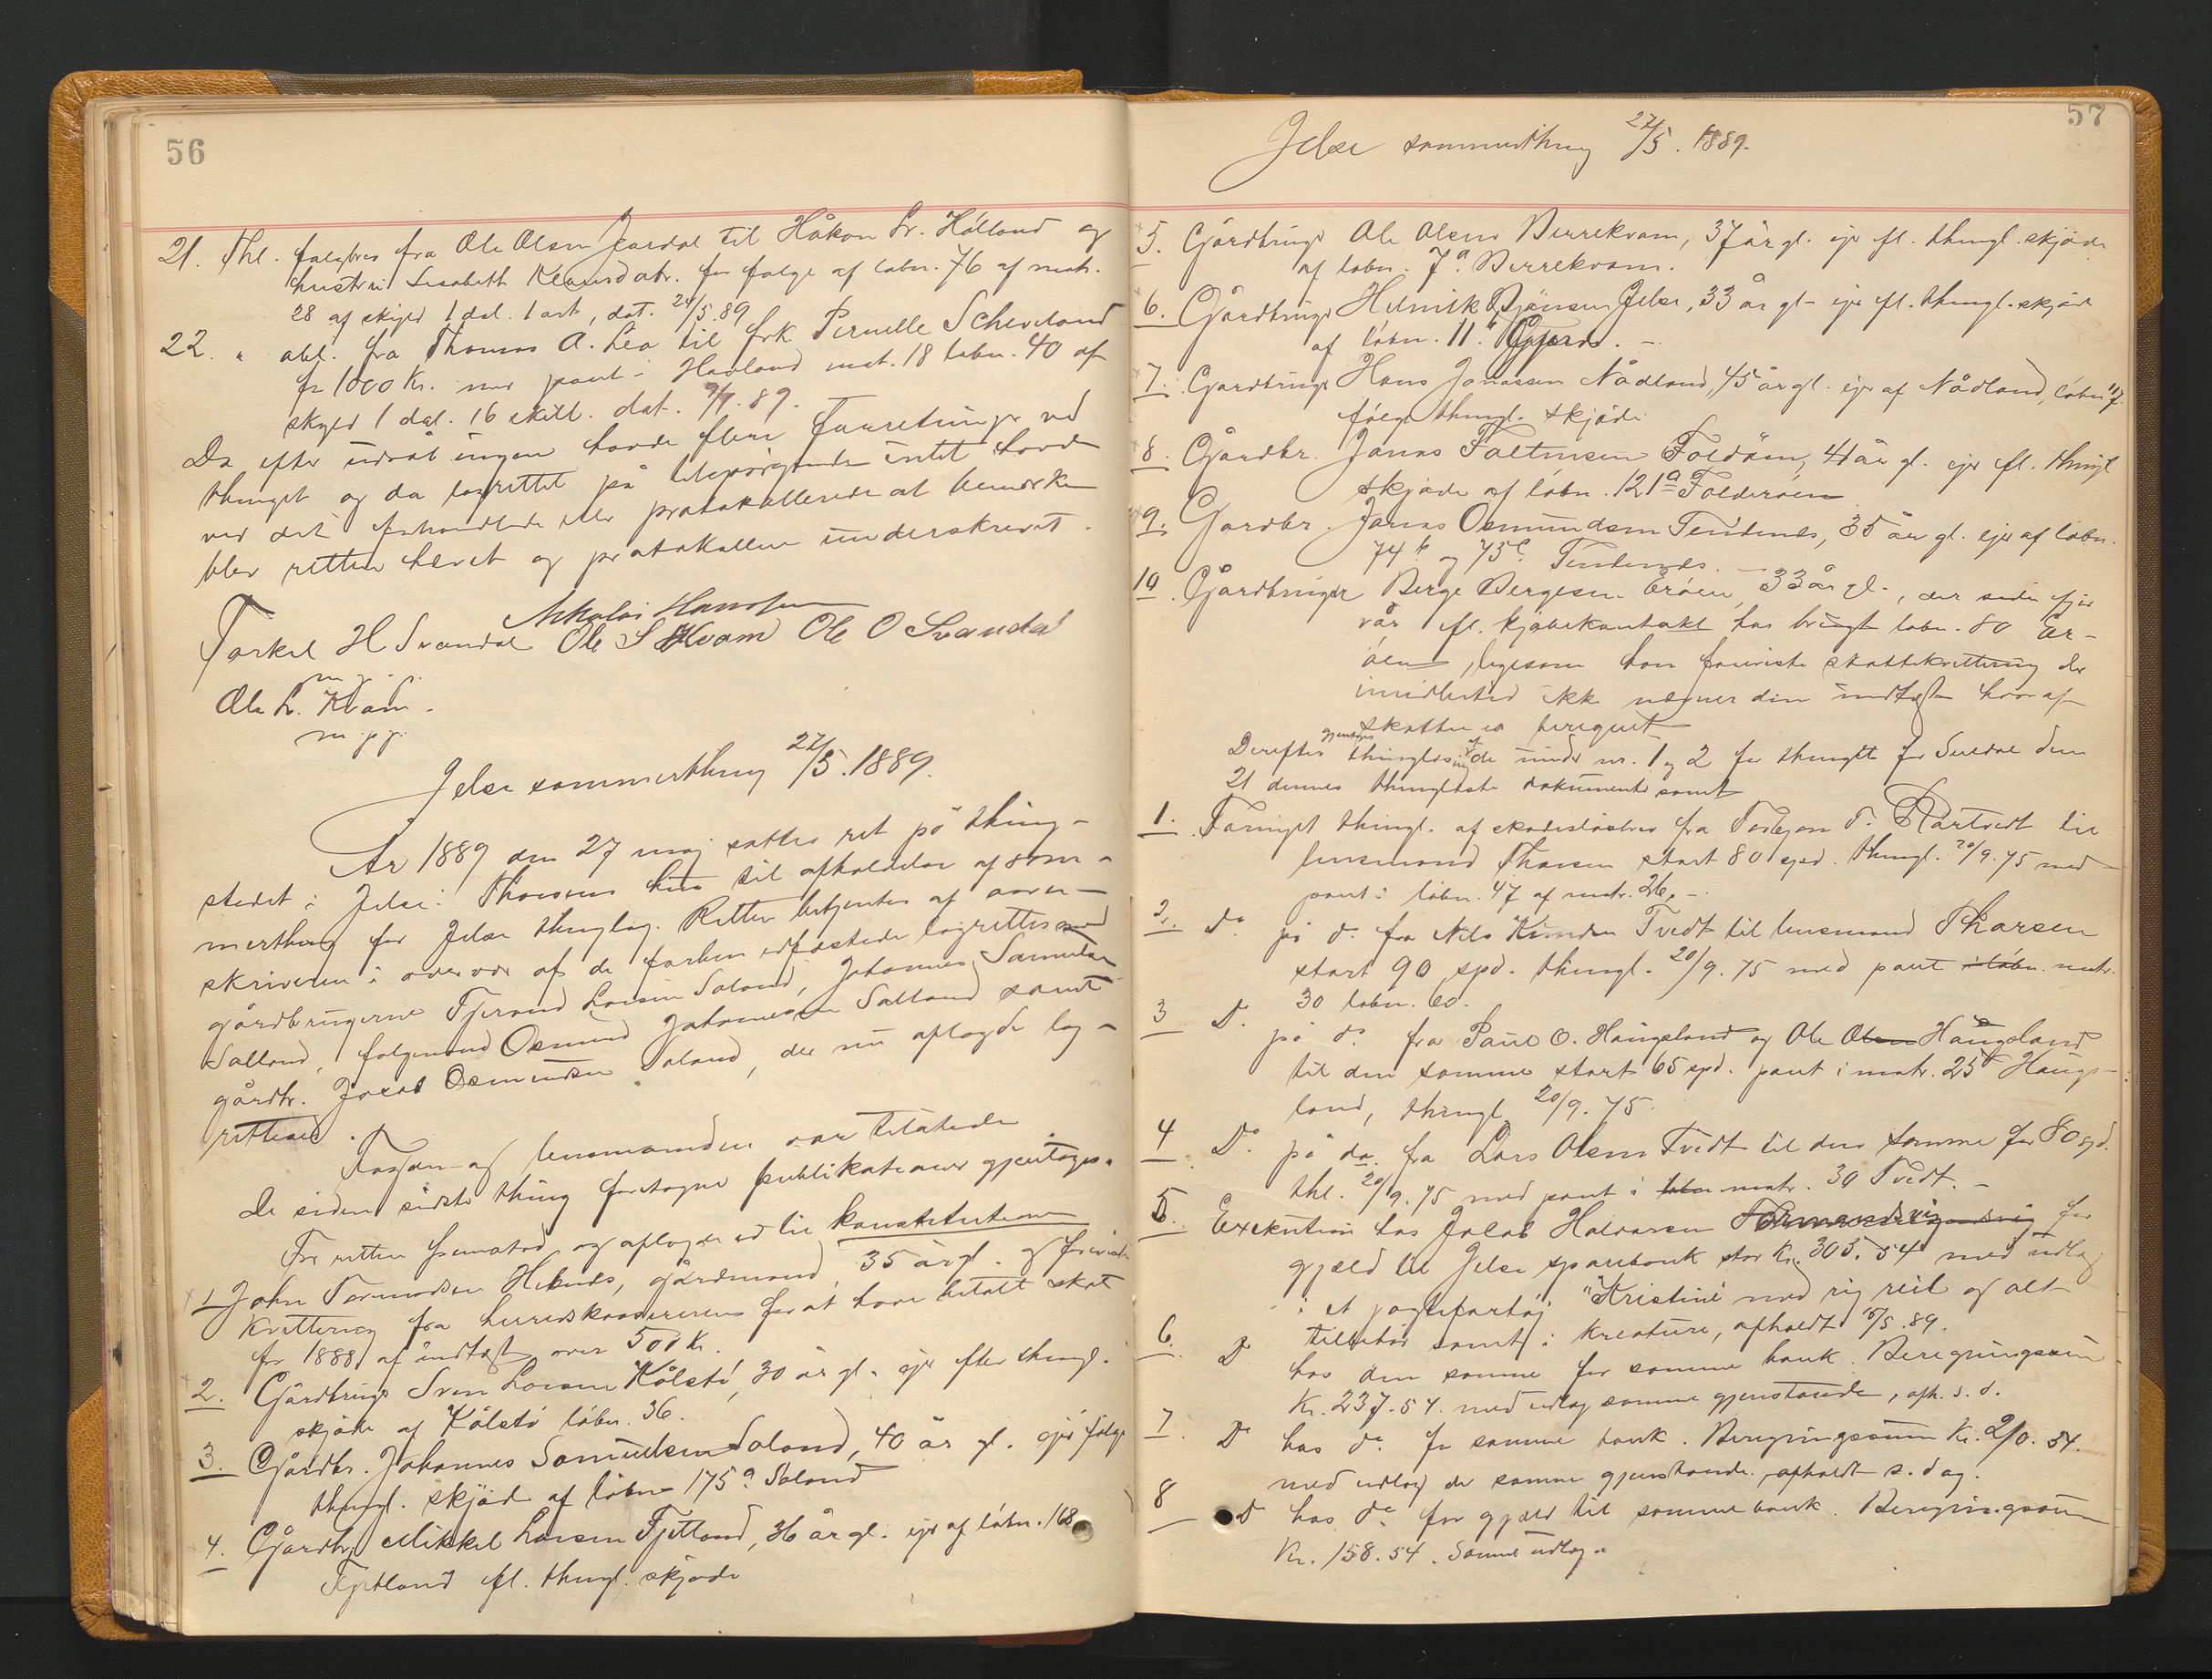 56
21. Thl. folgebrev fra Ole Olsen Jaardal til Håkon Sv. Hålland og
hustru Lisabeth Klausdatr. for folge af løbn. 76 af matr.
28 af skyld 1 dal. 1 ort, dat. 24/5 89
22. " obl. fra Thomas A. Lea til frk. Pernelle Scheveland
for 1000 Kr. med pant i Havland mat. 18 løbn. 40 af
skyld 1 dal. 16 skill. dat. 9/1. 89.
Da efter udråb ingen havde flere forretninger ved
thinget og da lagrettet på tilspørgende intet havde
ved det forhandlede eller protokollerede at bemærke
blev retten hævet og protokollen underskrevet.
Nikolai Hanssen
Torkel H Svandal Ole S Kvam Ole O Svandal
Ole L. Kvam.
m. p. p.
Jelse sommerthing 27/5. 1889.
År 1889 den 27 maj sattes ret på thing-
stedet i Jelse: Thorsens hus til afholdelse af som-
merthing for Jelse thinglag. Retten betjentes af soren-
skriveren i overvær af de forhen edfæstede lagrettesmænd
gårdbrugerne Tjerand Larsen Soland, Johannes Samuelsen
Salland, folgemand Osmund Johannesen Salland samt
gårdbr. Jacob Osmundsen Soland, der nu aflagde lag-
rettesed.
Fogden og lensmanden var tilstede.
De siden sidste thing foretagne publikationer gjentoges.
For retten fremstod og aflagde ed til konstitutionen
1 John Tormodsen Hebnes, gårdmand, 35 år gl. og foreviste
kvittering fra herredskassereren for at have betalt skat
for 1888 af indtægt over 500 Kr.
2. Gårdbruger Sven Larsen Kålstö, 30 år gl. ejer efter thingl.
skjøde af Kålstö løbn. 36.
3. Gårdbr. Johannes Samuelsen Soland, 40 år gl. ejer følge
thingl. skjøde af løbn 175 a Soland
4. Gårdbr. Mikkel Larsen Fjetland, 36 år gl. ejer af løbn. 168
Fjetland efl. thingl. skjøde
57
Jelse sommerthing 27/5. 1889.
5. Gårdbruger Ole Olsen Berrekvam, 37 år gl. ejer efl. thingl. skjøde
af løbn. 7a. Berrekvam.
6. Gårdbruger Helmik Bjönsen Jelse, 33 år gl. ejer efl. thingl. skjøde
af løbn. 11.
7. Gardbruger Hans Jonassen Nådland, 45 år gl. ejer af Nådland, løbn
følge thingl. skjøde
8. Gårdbr. Jonas Foltmsen Foldöen, 41 år gl. ejer efl. thingl
skjøde af løbn. 121a Folderöen
9. Gardbr. Jonas Osmundsen Tendenes, 35 år gl. ejer af løbn.
74 b og 75 c. Tendenes.
10. Gårdbruger Berge Bergesen Eröen, 33 år gl., der siden ifjor
vår efl. kjøbekontrakt har brugt løbn. 80 Er-
öen, ligesom han foreviste skattekvittering der
imidlertid ikke nævner den indtægt hvoraf
skatten er beregnet
Derefter gjentoges thinglæsning af de under nr. 1 og 2 for thinget for Suldal den
21 dennes thinglæste dokumenter samt
1. Fornyet thingl. af skadesløsbrev fra Torbjørn T. Råstvedt til
lensmand Thorsen stort 80 spd. thingl. 20/9. 75 med
pant i løbn. 47 af matr. 26.
2. Do på do fra Nils Knudsen Tvedt til lensmand Thorsen
stort 90 spd. thingl. 20/9. 75 med pant i løbn. matr.
30 løbn. 60.
3 Do. på do. fra Paul O. Haugsland og Ole Olsen Haugsland
til den samme stort 65 spd. pant i matr. 25 Haugs-
land, thingl. 20/9. 75.
4 Do. på do. fra Lars Olsen Tvedt til den samme for 80 spd.
thl. 20/9. 75 med pant i løbn matr. 30 Tvedt.
5. Exekution hos Jakob Halvorsen for
gjæld til Jelse sparebank stor Kr. 305. 54 med udlæg
i et jagtefartøj "Kristine" med rig reil og alt
tilbehør samt i kreature, afholdt 15/5. 89.
6. Do hos den samme for samme bank. Beregningssum
Kr. 237. 54. med udlæg samme gjenstande, afh. s. d.
7. Do hos do. for samme bank. Beregningssum Kr. 210. 54.
med udlæg de samme gjenstande. afholdt s. dag.
8 Do hos do. for gjæld til samme bank. Beregningssum
Kr. 158. 54. Samme udlæg.